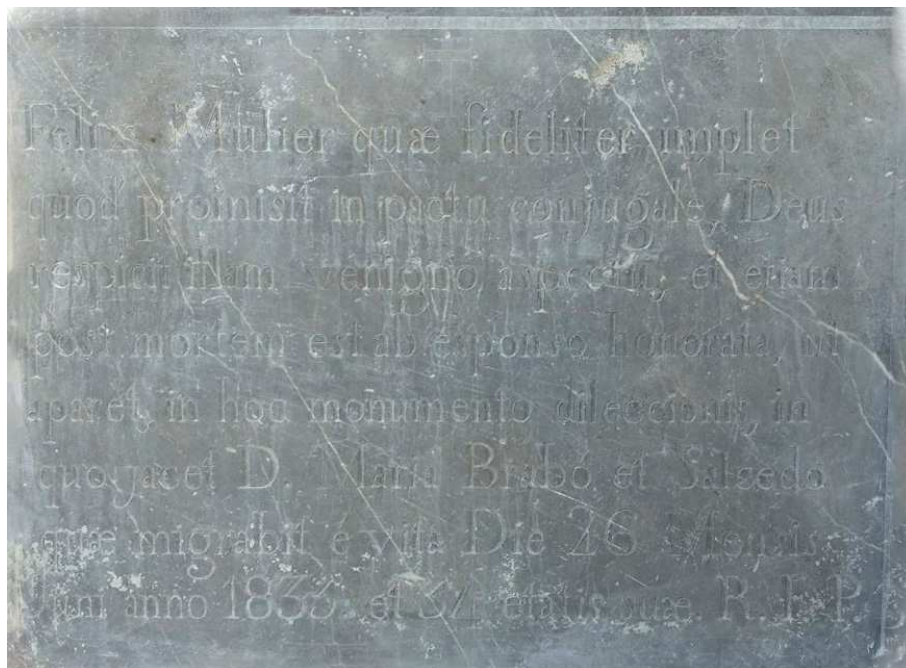 Felix Mulier quæ fideliter implet
quod promisit in pactu conjugale, Deus
respicit illam venigno aspectu, et etiam
post mortem est ab esponso honorata, ut
aparet, in hoc monumento dileccionis, in
quo jacet D. Maria Brabo et Salzedo
quæ migrabit e vita Die 26 Mensis
Juni anno 1833 et 37 etatis suæ R. I. P.